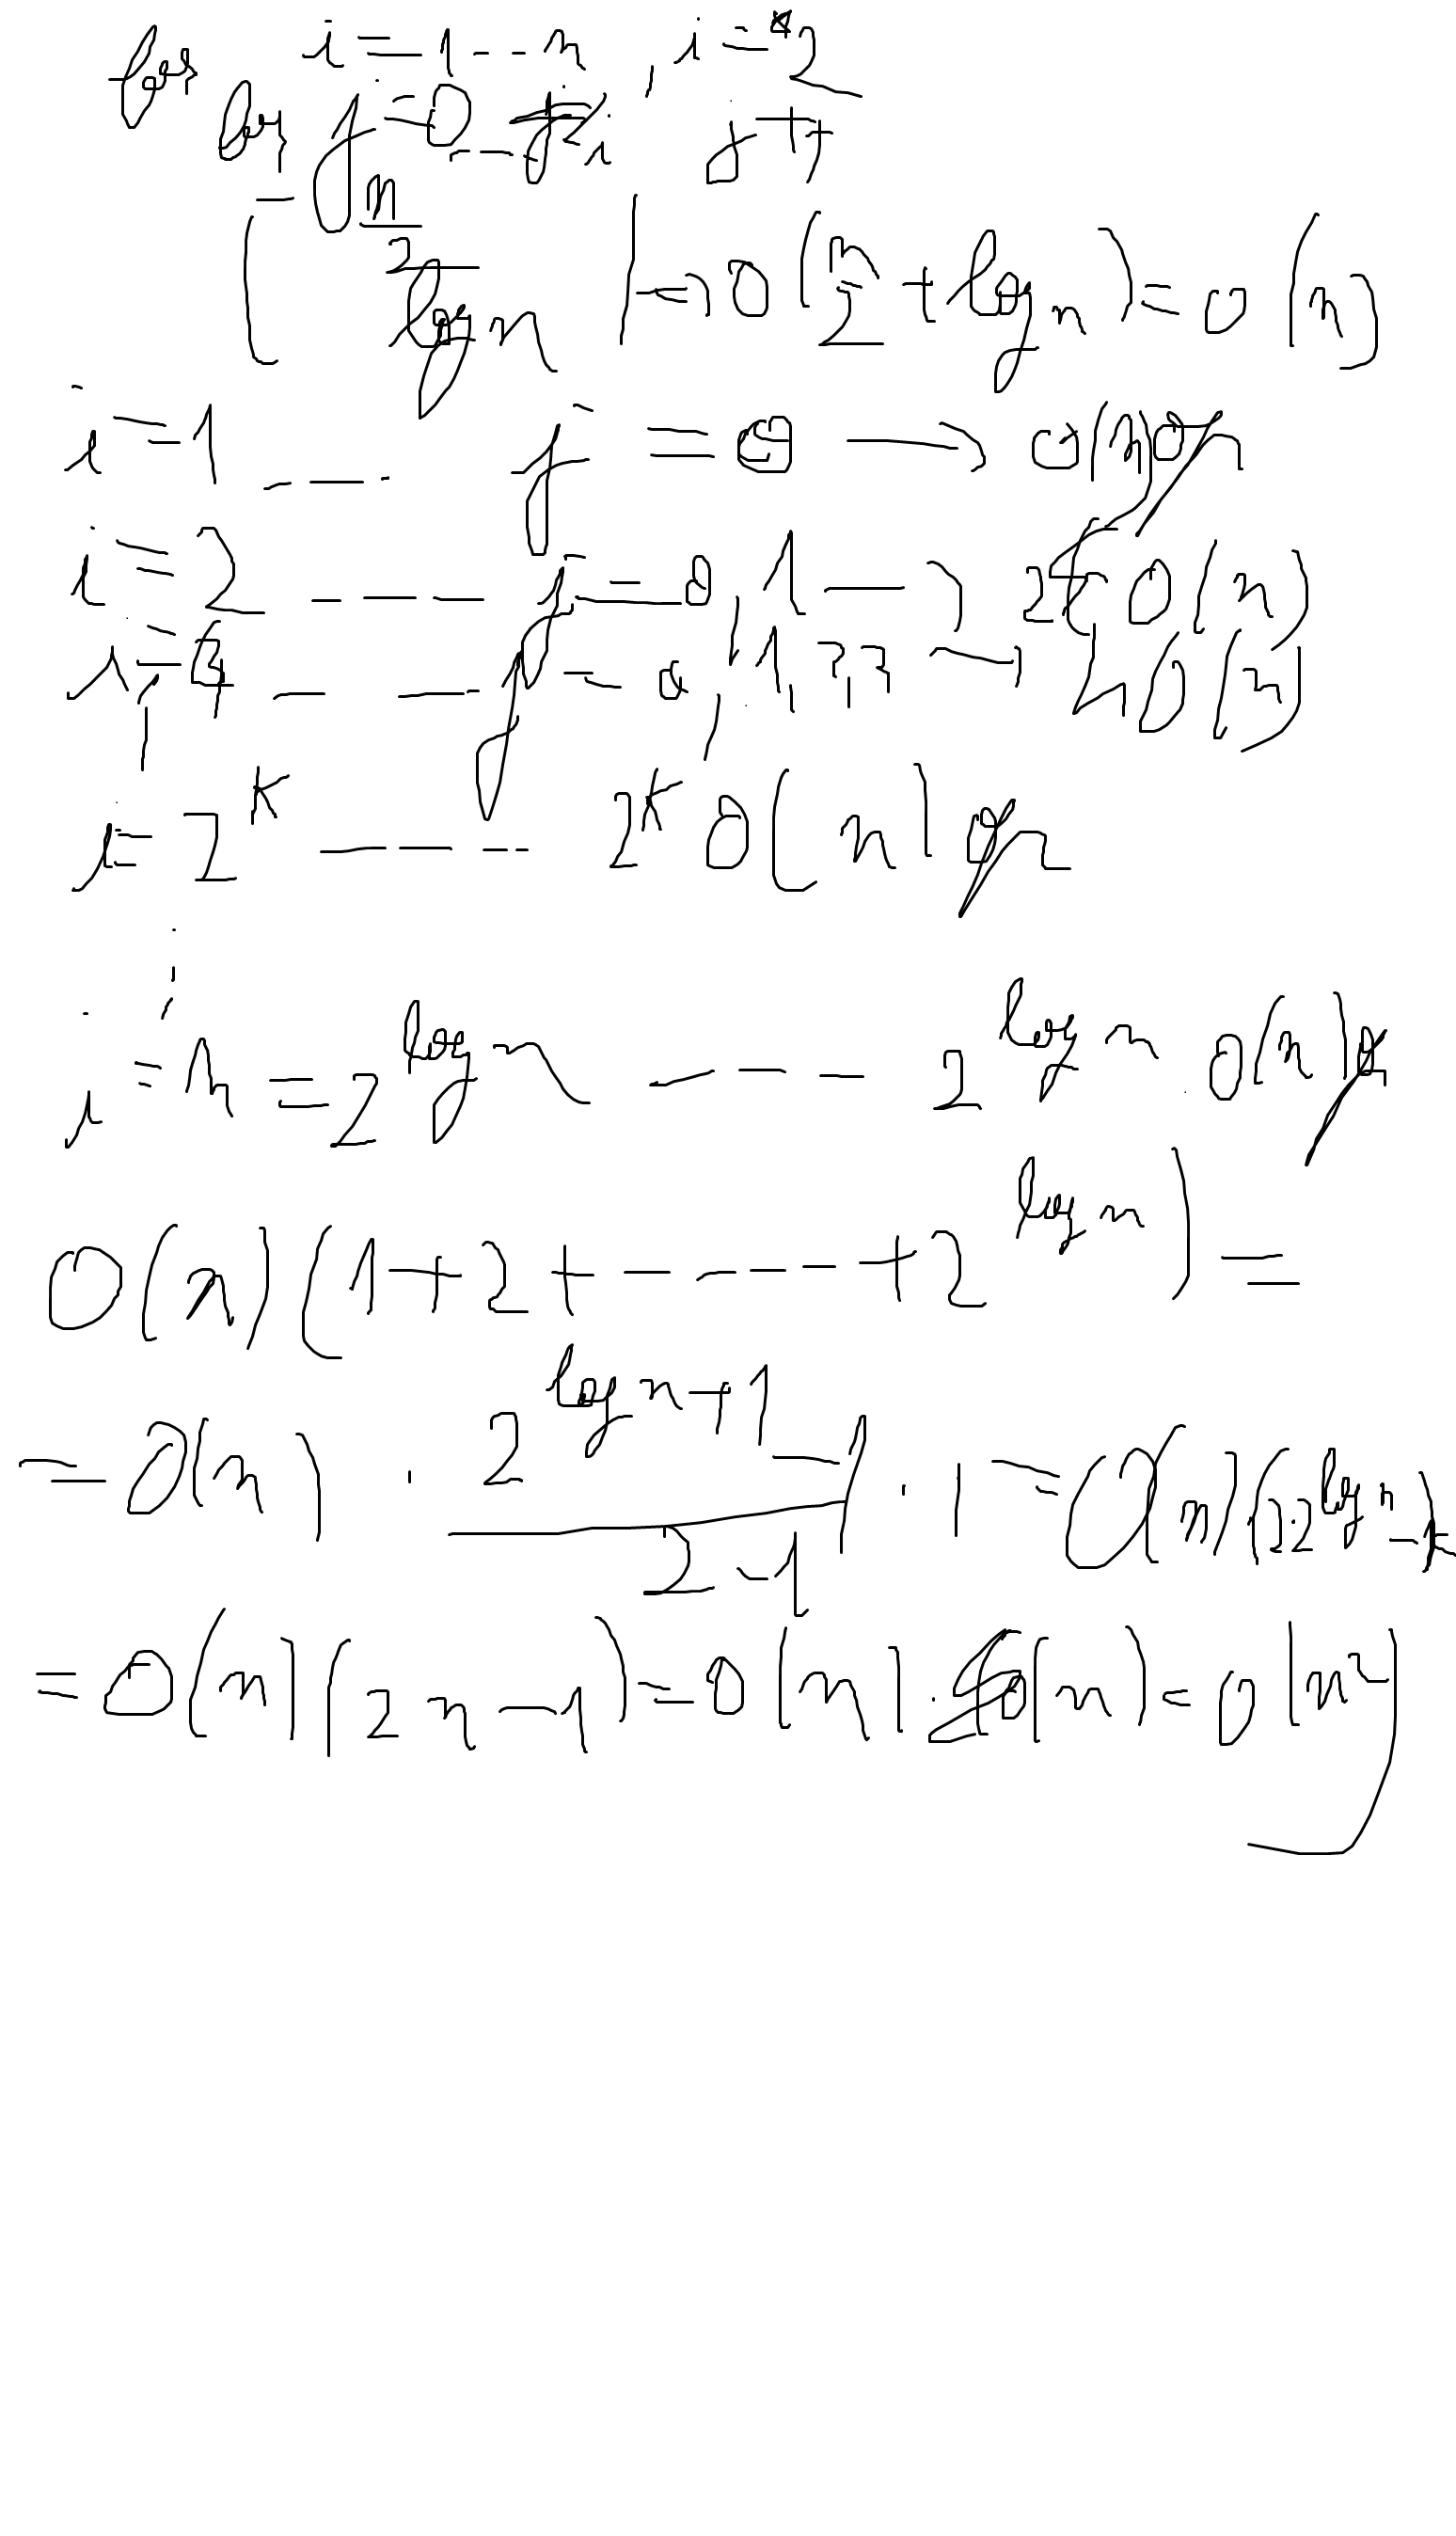 for i = 1 -- n , i = *2
for j = 0 --- i j++
n/2
log n → O(n/2 + log n) = O(n)
i = 1 --- j = 0 → O(n)
i = 2 ---- j = 0, 1 → 2 O(n)
i = 4 --- j = 0, 1, 2, 3 → 4 O(n)
i = 2^k ---- 2^k O(n)
i = n = 2^log n --- 2^log n . O(n)
O(n) (1 + 2 + ----- + 2^log n) =
= O(n) . (2^(log n + 1) - 1)/(2 - 1) . 1 = O(n) (2.2^log n - 1)
= O(n) (2n - 1) = O(n) . O(n) = O(n^2)